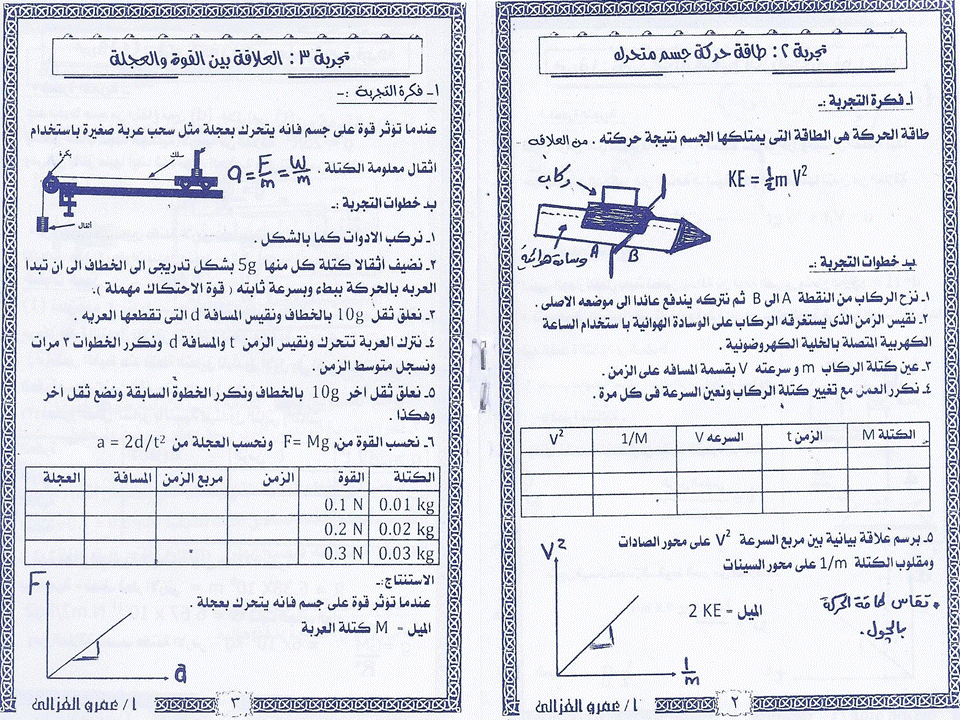 تجربة ٢: طاقة حركة جسم متحرك
أ- فكرة التجربة :-
طاقة الحركة هى الطاقة التى يمتلكها الجسم نتيجة حركته . من العلاقة -
KE = ½m V²
ركاب
A
B
وسادة هوائية
بـ خطوات التجربة :-
١- نزح الركاب من النقطة A الى B ثم نتركه يندفع عائدا الى موضعه الاصلى .
٢- نقيس الزمن الذى يستغرقه الركاب على الوسادة الهوائية باستخدام الساعة
الكهربية المتصلة بالخلية الكهروضوئية .
٣- عين كتلة الركاب m و سرعته V بقسمة المسافه على الزمن .
٤- نكرر العمل مع تغيير كتلة الركاب ونعين السرعة فى كل مرة .
الكتلة M الزمن t السرعه V 1/M V²
٥- برسم علاقة بيانية بين مربع السرعة V² على محور الصادات
ومقلوب الكتلة 1/m على محور السينات
V²
الميل = 2 KE
* تقاس طاقة الحركة
بالجول .
1/m
أ/ عمرو الغزالى
٢
تجربة ٣: العلاقة بين القوة والعجلة
أ- فكرة التجربة :-
عندما تؤثر قوة على جسم فانه يتحرك بعجلة مثل سحب عربة صغيرة باستخدام
اثقال معلومة الكتلة .
a = F/m = W/m
بكرة
سلك
أثقال
بـ خطوات التجربة :-
١- نركب الادوات كما بالشكل .
٢- نضيف اثقالا كتلة كل منها 5g بشكل تدريجى الى الخطاف الى ان تبدا
العربه بالحركة ببطء وبسرعة ثابته ( قوة الاحتكاك مهملة ).
٣- نعلق ثقل 10g بالخطاف ونقيس المسافة d التى تقطعها العربه .
٤- نترك العربة تتحرك ونقيس الزمن t والمسافة d ونكرر الخطوات ٣ مرات
ونسجل متوسط الزمن .
٥- نعلق ثقل اخر 10g بالخطاف ونكرر الخطوة السابقة ونضع ثقل اخر
وهكذا .
٦- نحسب القوة من F= Mg, ونحسب العجلة من a = 2d/t²
الكتلة القوة الزمن مربع الزمن المسافة العجلة
0.01 kg 0.1 N
0.02 kg 0.2 N
0.03 kg 0.3 N
الاستنتاج:-
عندما تؤثر قوة على جسم فانه يتحرك بعجلة .
الميل = M كتلة العربة
F
a
أ/ عمرو الغزالى
٣